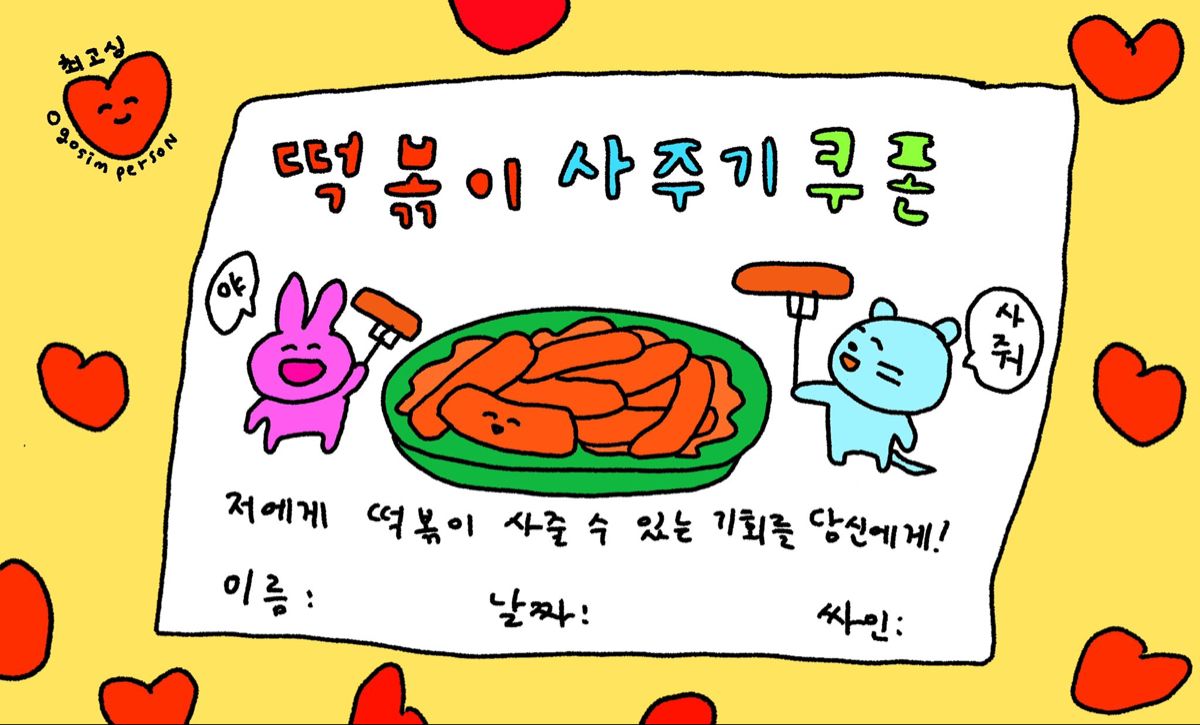 최고심
Ogosim person
떡볶이 사주기 쿠폰
야
사
줘
저에게 떡볶이 사줄 수 있는 기회를 당신에게!
이름: 날짜: 싸인: